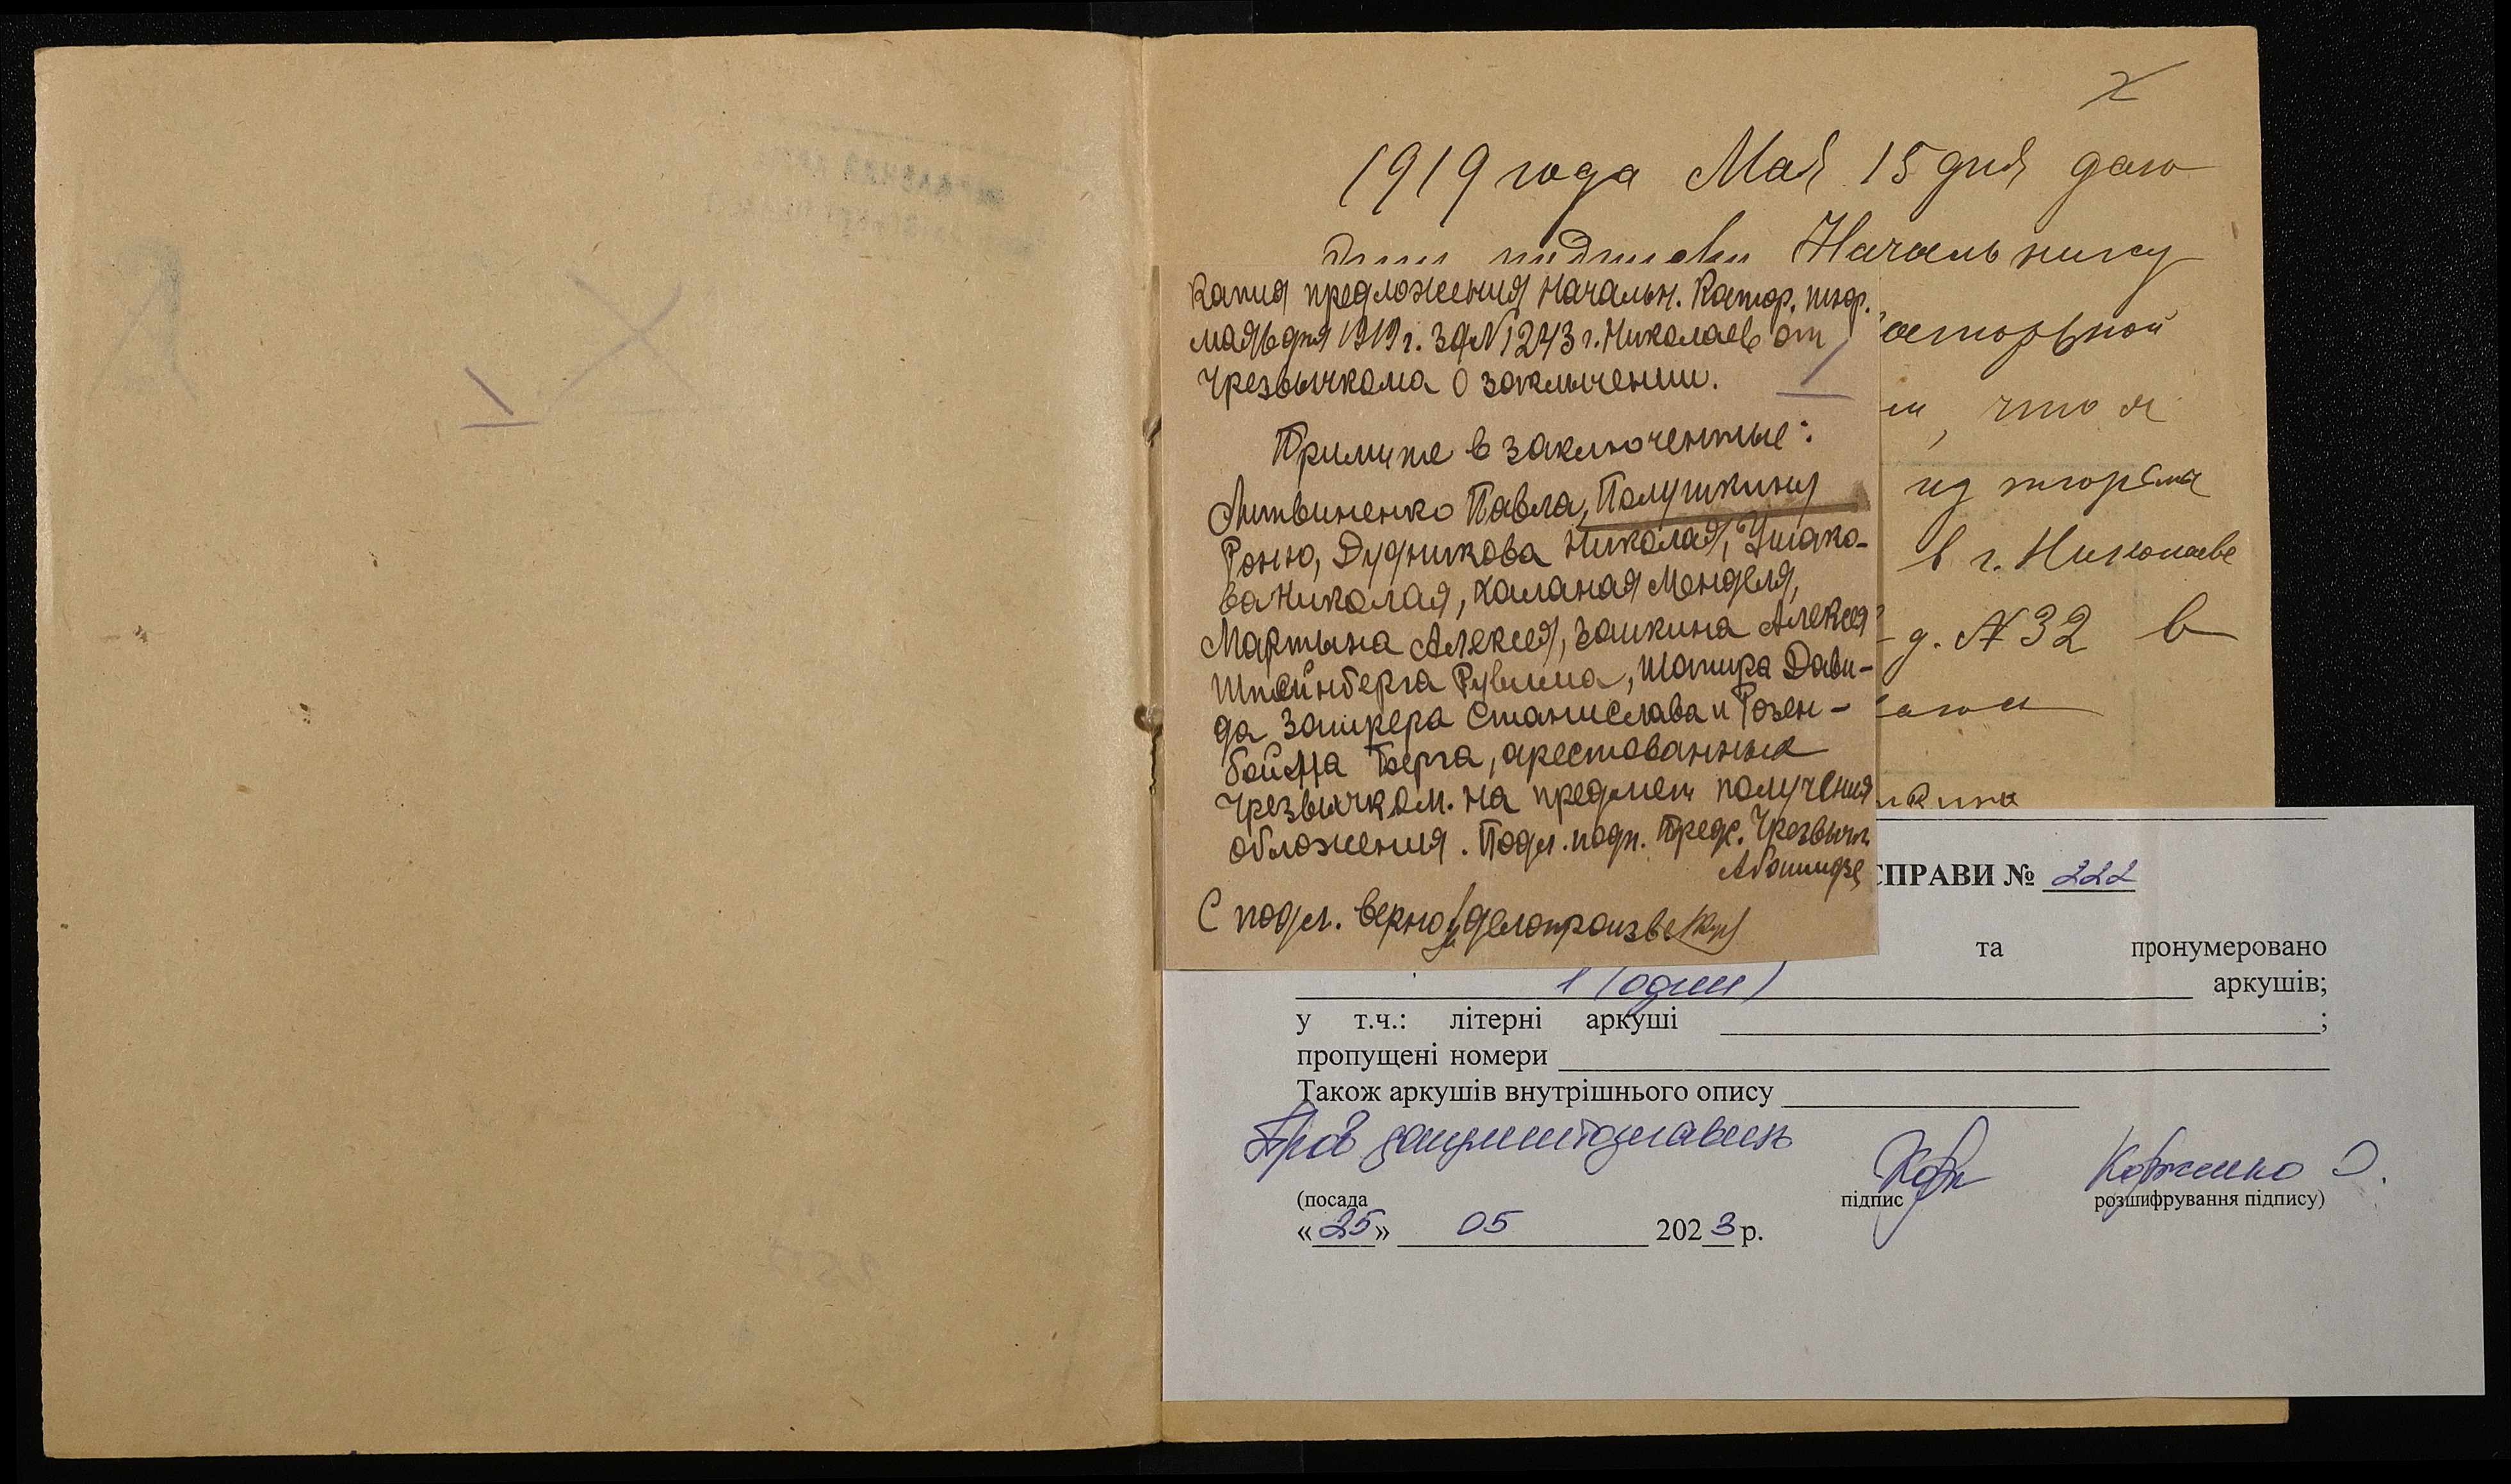 1919 года Мая 15 дня даю
Начальнику
Копия предложения Начальн. Катор. тюр.
мая 6 дня 1919 г. за N 1243 г. Николаев от
Чрезвычкома О заключении.
1
Примите в заключенные:
Литвиненко Павла, Полушкину
Роню, Дудникова Николая, Ушако-
ва Николая, Каланая Менделя,
Мартына Алексея, Заикина Алексея
Штейнберга Рувима, Шапира Дави-
да Заикера Станислава и Розен-
берга, арестованных
Чрезвычком. на предмет получения
обложения. Подл. подп. Предс. Чрезвыч.
Абашидзе
С подл. верно: делопроизв
аторжной
, что я
из тюрьмы
в г. Николаеве
д. N 32 в
СПРАВИ № 222
та пронумеровано
1 (один) аркушів;
у т.ч.: літерні аркуші ;
пропущені номери
Також аркушів внутрішнього опису
Пров документознавець
Корженко О.
(посада підпис розшифрування підпису)
«25» 05 2023 р.